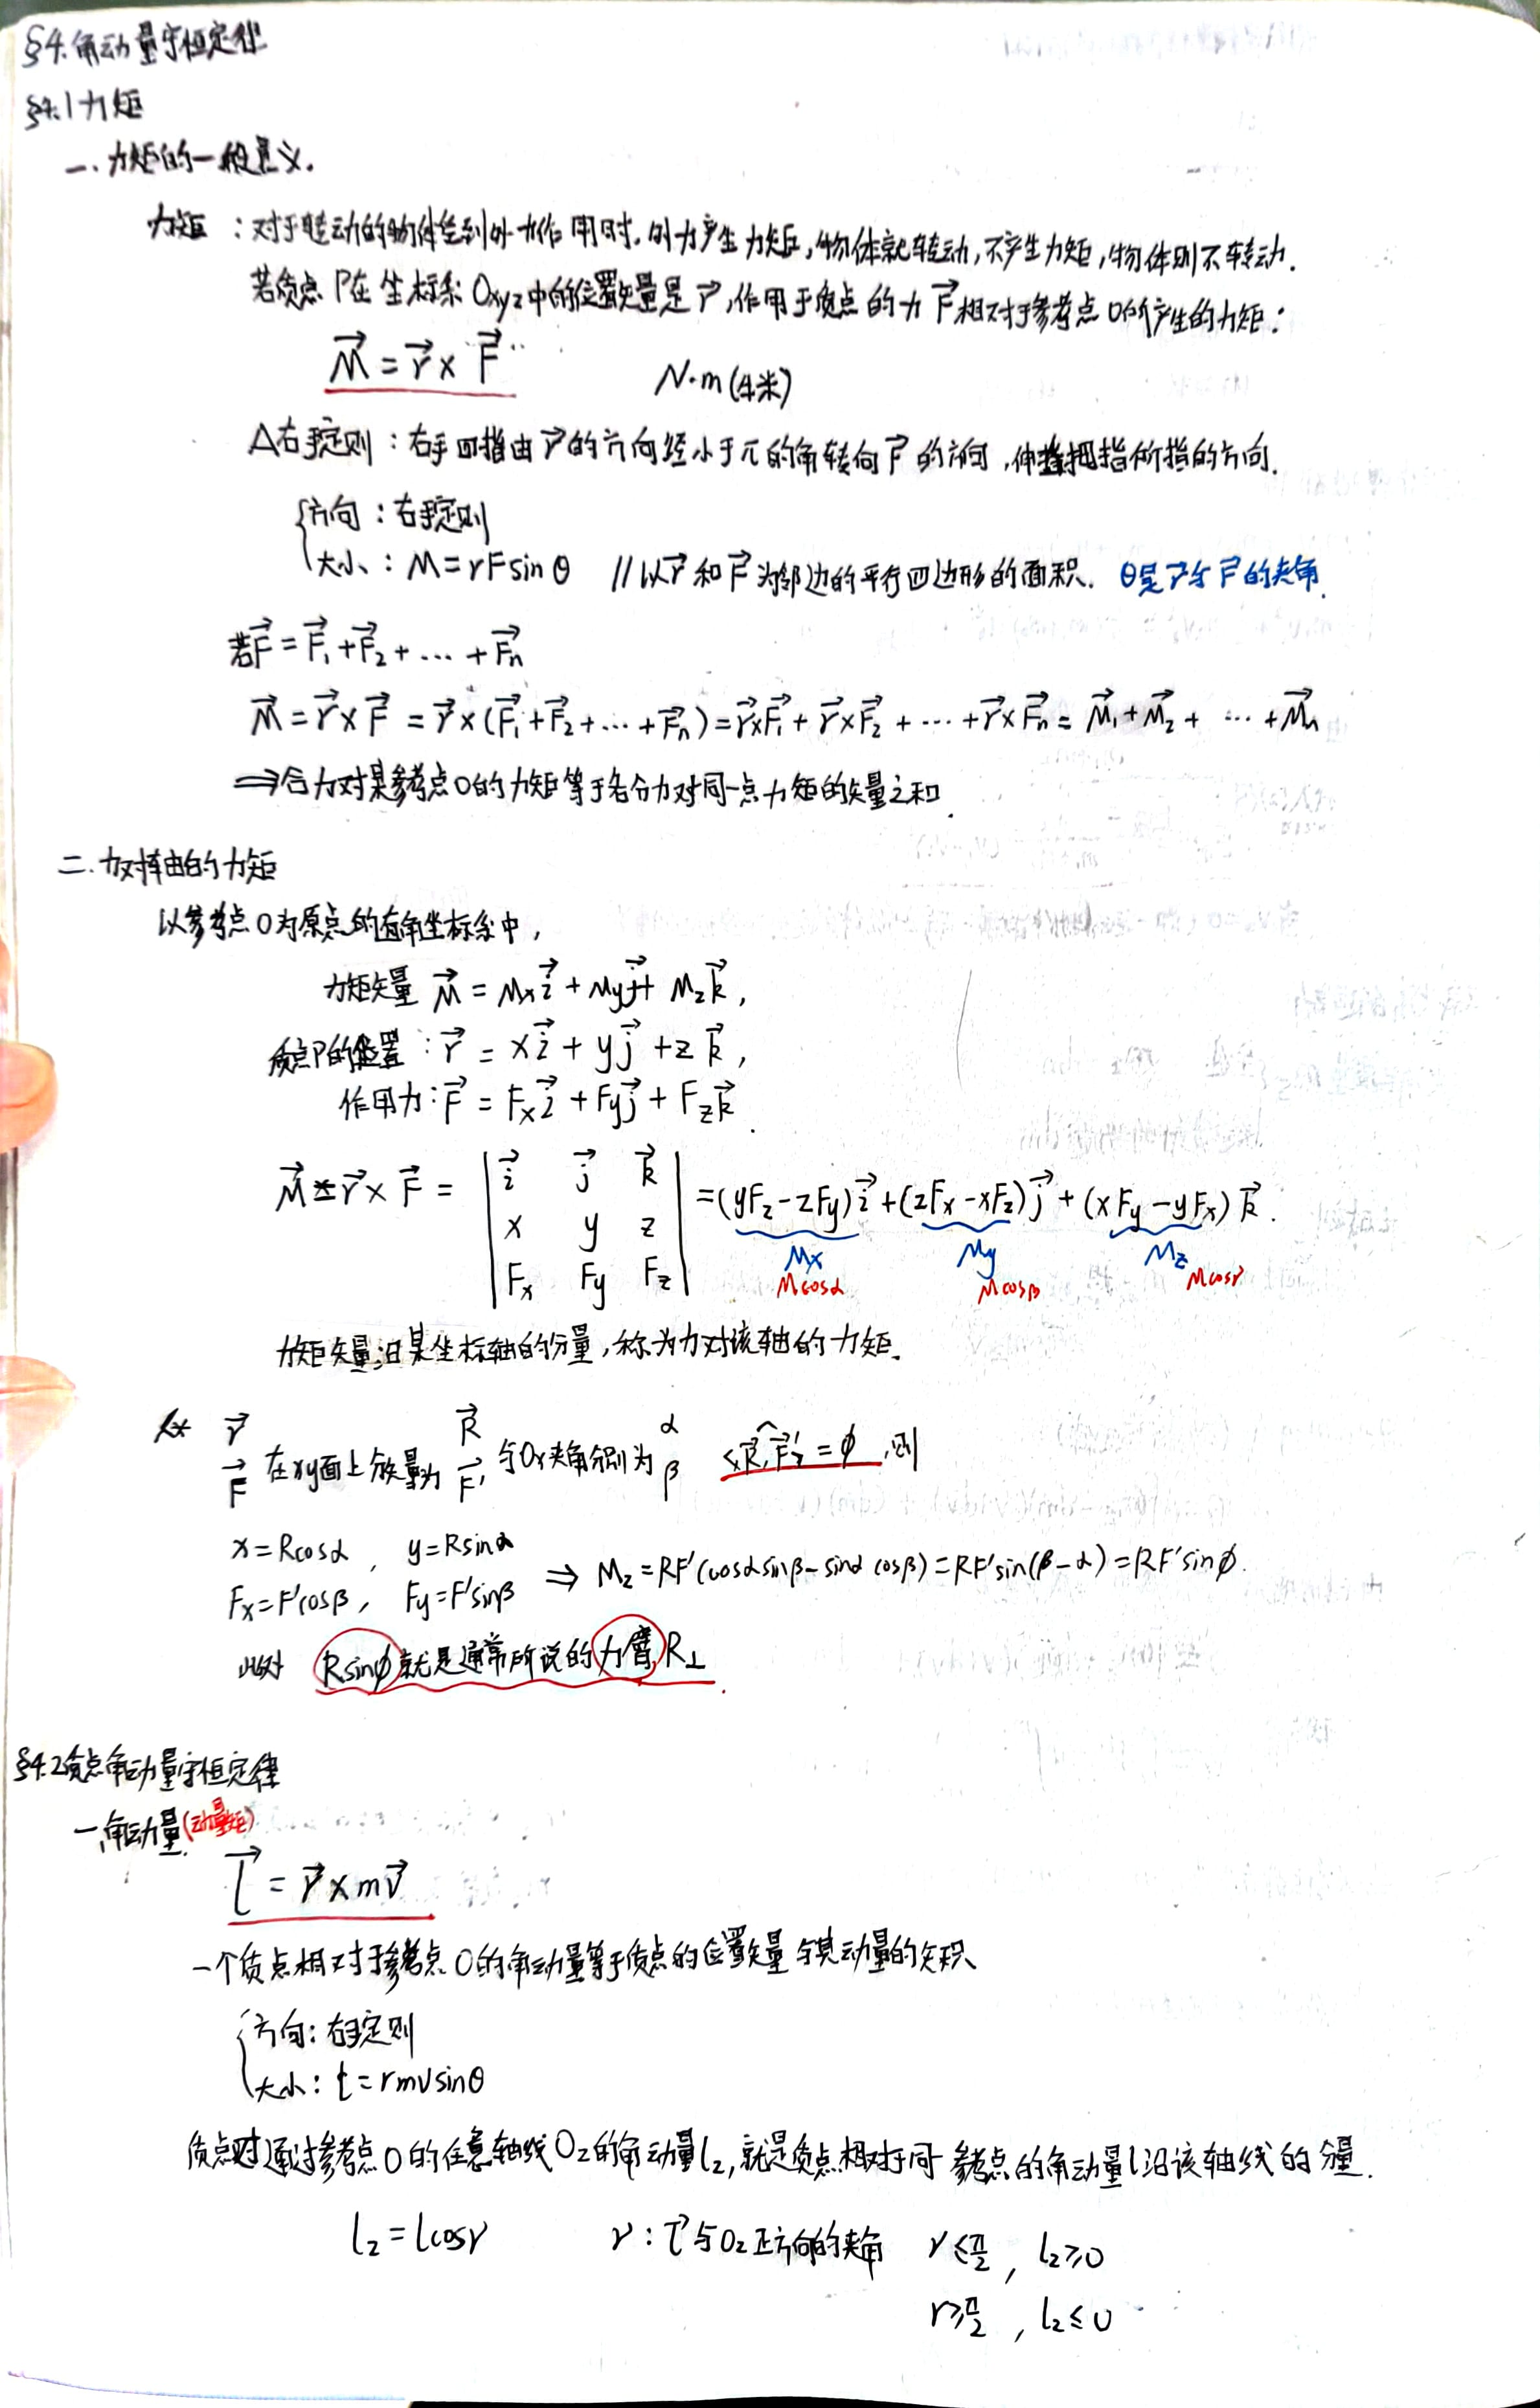 §4.角动量守恒定律
§4.1力矩
一.力矩的一般意义.
力矩:对于转动的物体受到外力作用时,外力产生力矩,物体就转动,不产生力矩,物体则不转动.
若质点P在坐标系Oxyz中的位置矢量是r⃗,作用于质点的力F⃗相对于参考点O所产生的力矩:
M⃗=r⃗×F⃗ N·m(牛米)
△右手定则:右手四指由r⃗的方向经小于π的角转向F⃗的方向,伸直拇指所指的方向.
{方向:右手定则
大小:M=rFsinθ //以r⃗和F⃗为邻边的平行四边形的面积. θ是r⃗与F⃗的夹角.
若F⃗=F⃗₁+F⃗₂+…+F⃗n
M⃗=r⃗×F⃗=r⃗×(F⃗₁+F⃗₂+…+F⃗n)=r⃗×F⃗₁+r⃗×F⃗₂+…+r⃗×F⃗n=M⃗₁+M⃗₂+…+M⃗n
⇒合力对某参考点O的力矩等于各分力对同一点力矩的矢量之和.
二.力对轴的力矩
以参考点O为原点的直角坐标系中,
力矩矢量 M⃗=Mxi⃗+Myj⃗+Mzk⃗,
质点P的位置:r⃗=xi⃗+yj⃗+zk⃗,
作用力:F⃗=Fxi⃗+Fyj⃗+Fzk⃗.
M⃗=r⃗×F⃗=|i⃗ j⃗ k⃗|=(yFz-zFy)i⃗+(zFx-xFz)j⃗+(xFy-yFx)k⃗.
|x y z| Mx My Mz
|Fx Fy Fz| Mcosα Mcosβ Mcosγ
力矩矢量沿某坐标轴的分量,称为力对该轴的力矩.
r⃗ R⃗ α
F⃗ 在xy面上分量为 F⃗' 与Ox夹角分别为 β <R⃗,F⃗'>=φ,则
x=Rcosα, y=Rsinα
Fx=F'cosβ, Fy=F'sinβ ⇒ Mz=RF'(cosαsinβ-sinαcosβ)=RF'sin(β-α)=RF'sinφ.
此时 Rsinφ就是通常所说的力臂R⊥.
§4.2质点角动量守恒定律
一.角动量.(动量矩)
l⃗=r⃗×mv⃗
一个质点相对于参考点O的角动量等于质点的位置矢量与其动量的矢积
{方向:右手定则
大小:l=rmvsinθ
质点对通过参考点O的任意轴线Oz的角动量lz,就是质点相对于同一参考点的角动量l沿该轴线的分量.
lz=lcosγ γ:l⃗与Oz正方向的夹角 γ≤π/2, lz≥0
γ≥π/2, lz≤0